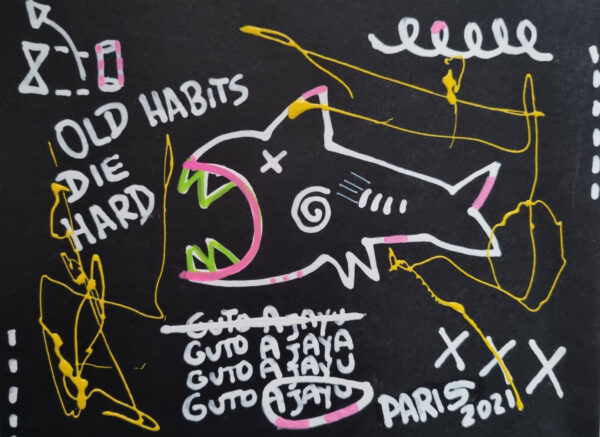 OLD HABITS
DIE
HARD
GUTO AJAYU
GUTO AJAYA
GUTO AJAYU
GUTO AJAYU
PARIS
2021
X X X